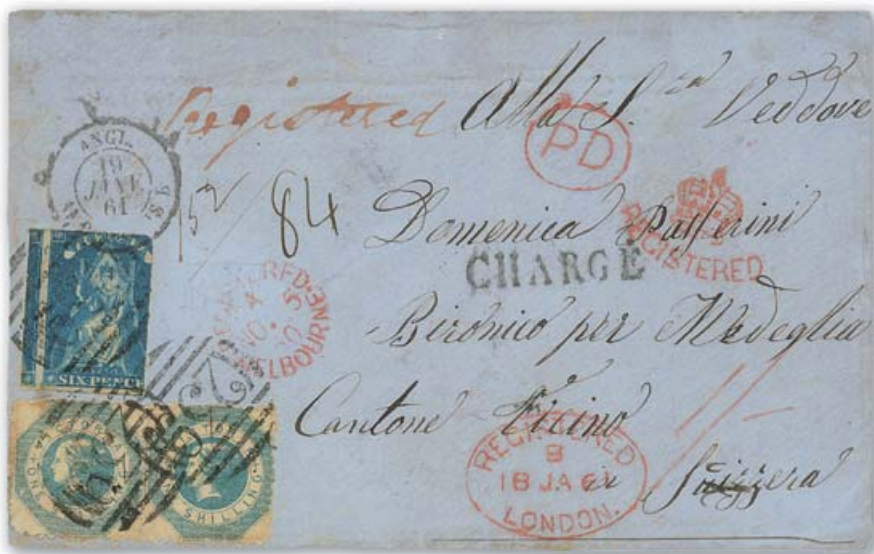 Registered Alla S.ra Veddova
PD
ANGL.
19
JANV
61
152/84
Domenica Passerini
REGISTERED
CHARGÉ
REGISTERED
MELBOURNE
Bironico per Medeglia
SIX PENCE
Cantone Ticino
REGISTERED
B
18 JA 61
LONDON.
in Svizzera
VICTORIA
ONE
SHILLING